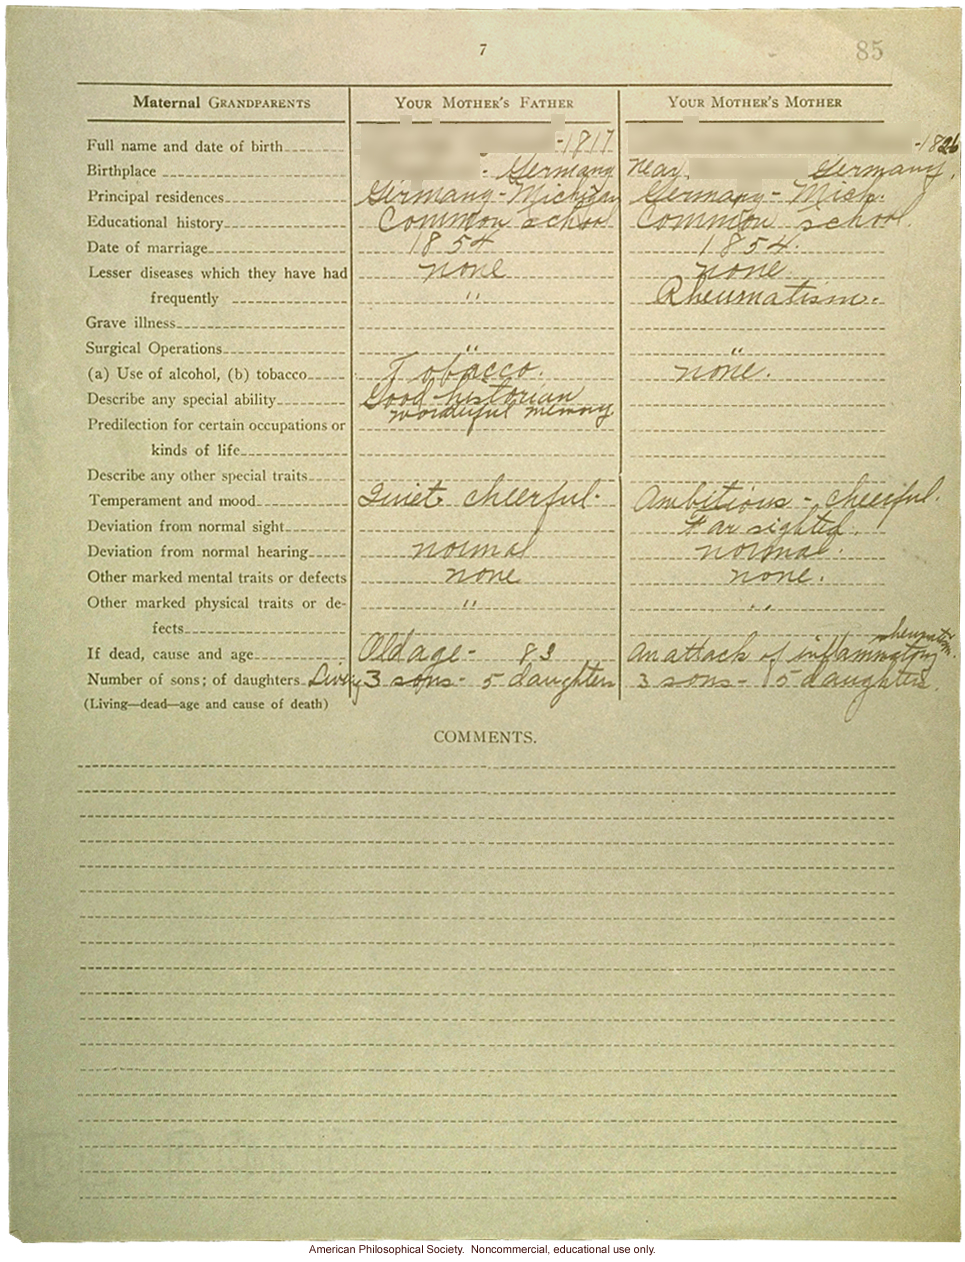 7
85
Maternal GRANDPARENTS YOUR MOTHER'S FATHER YOUR MOTHER'S MOTHER
Full name and date of birth -1817 -1826
Birthplace Germany Near Germany.
Principal residences Germany-Michigan Germany - Mich.
Educational history Common school Common school.
Date of marriage 1854 1854.
Lesser diseases which they have had none none
frequently " Rheumatism.
Grave illness
Surgical Operations " "
(a) Use of alcohol, (b) tobacco Tobacco. none.
Describe any special ability Good historian
wonderful memory
Predilection for certain occupations or
kinds of life
Describe any other special traits
Temperament and mood Quiet cheerful. Ambitious - cheerful.
Deviation from normal sight Far sighted.
Deviation from normal hearing normal normal.
Other marked mental traits or defects none none.
Other marked physical traits or de- " "
fects
If dead, cause and age Old age - 83 An attack of inflammatory rheumatism.
Number of sons; of daughters Living 3 sons - 5 daughters 3 sons - 5 daughters.
(Living—dead—age and cause of death)
COMMENTS.
American Philosophical Society. Noncommercial, educational use only.